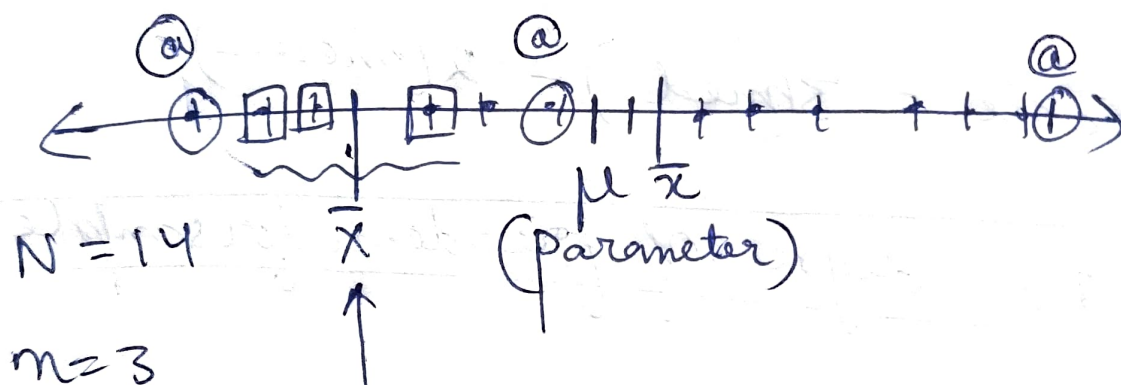 @ @ @
μ x̄
N = 14 x̄ (parameter)
n = 3